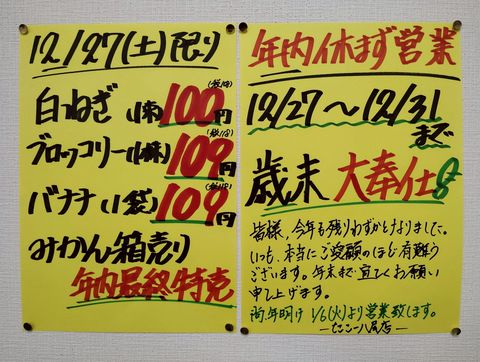 12/27(土)限り
白ねぎ(1束)100円(税抜)
ブロッコリー(1株)109円(税抜)
バナナ(1袋)109円(税抜)
みかん箱売り
年内最終特売
年内休まず営業
12/27〜12/31
まで
歳末大奉仕
皆様、今年も残りわずかとなりました。
いつも、本当にご愛顧のほど有難う
ございます。年末まで宜しくお願い
申し上げます。
尚、年明け 1/6(火)より営業致します。
八尾店